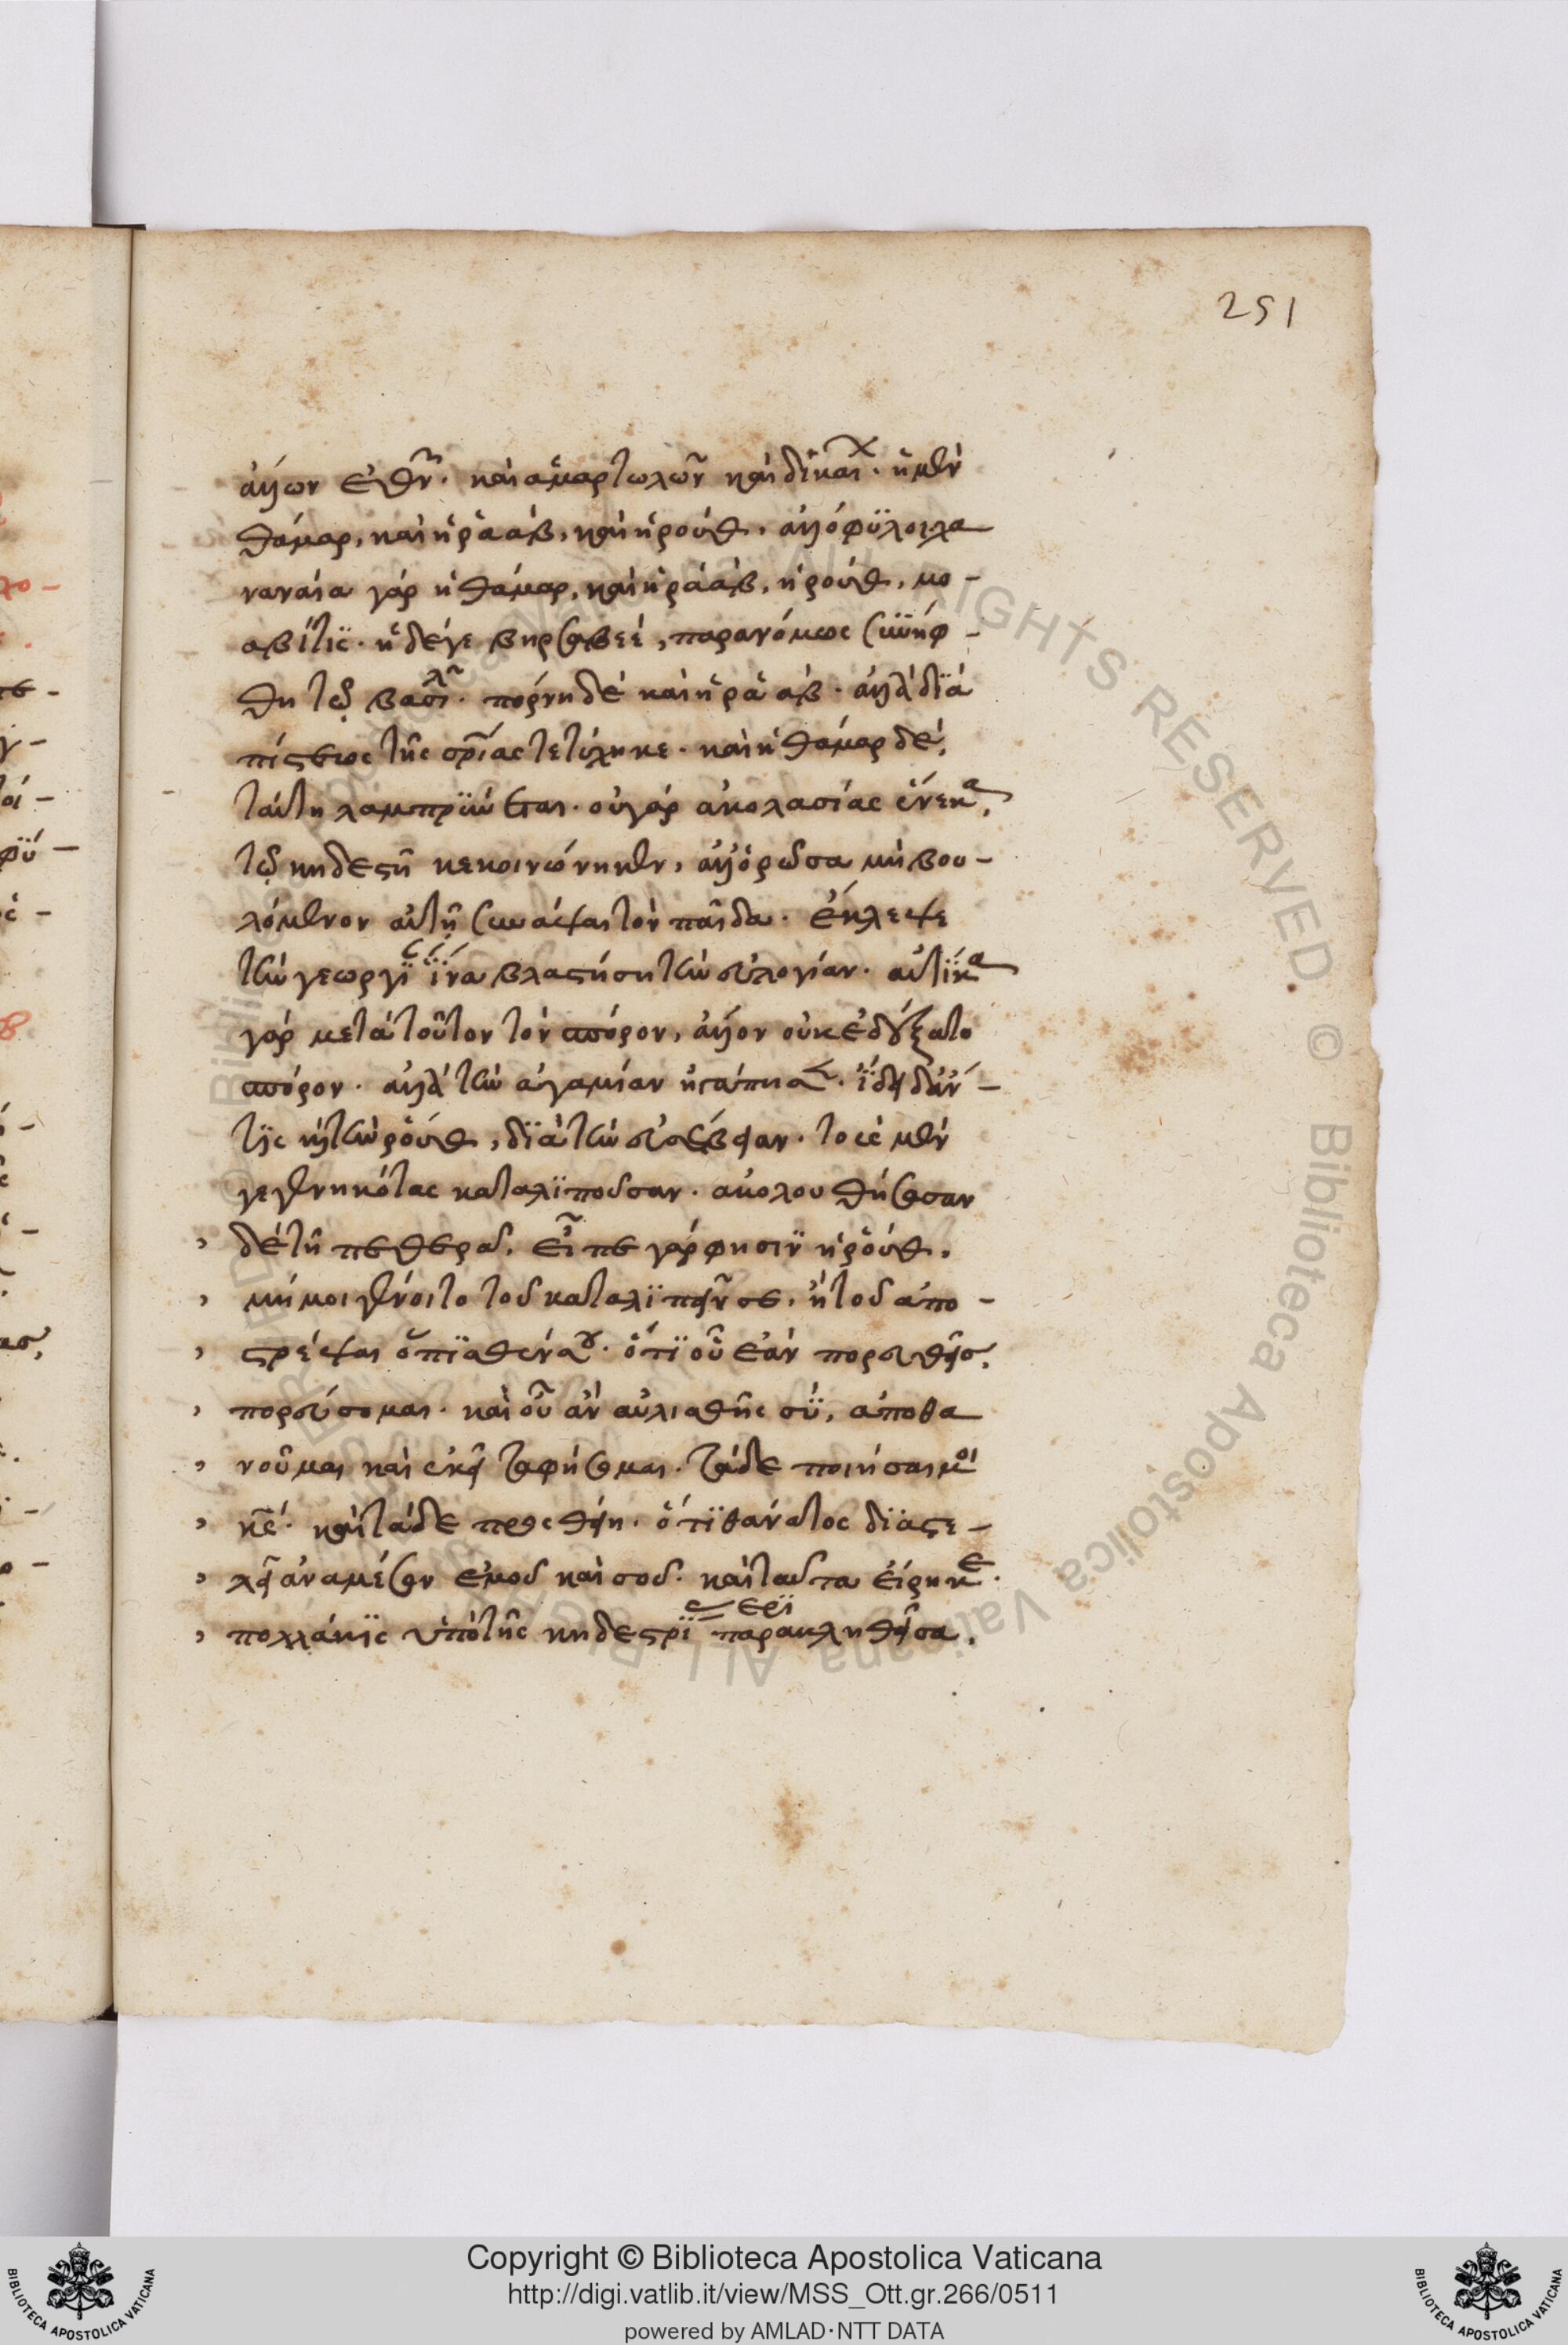 251
ἄλλων ἐθνῶν. καὶ ἁμαρτωλῶν καὶ δικαίων. ἡ μὲν
θάμαρ, καὶ ἡ ῥαὰβ, καὶ ἡ ῥούθ, ἀλλόφϋλοι χα
ναναία γὰρ ἡ θάμαρ, καὶ ἡ ῥαὰβ, ἡ ρούθ, μω-
αβίτϊς. ἡ δέγε βηρσαβεὲ, παρανόμως συνήφ-
θη τῷ βασιλεῖ. πόρνη δὲ καὶ ἡ ῥαὰβ. ἀλλὰ δϊὰ
πίστεως τῆς σρίας τετύχηκε. καὶ ἡ θάμαρ δὲ,
ταύτη λαμπρϋνεται. οὐ γὰρ ἀκολασίας ἕνεκα,
τῷ κηδεστῆ κεκοινώνηκεν, ἀλλ' ὁρῶσα μὴ βου-
λόμενον αὐτῇ συνάψαι τὸν παῖδα. ἔκλεψε
τὴν γεωργίαν ἵνα βλαστήση τὴν εὐλογίαν. αὐτίκα
γὰρ μετὰ τοῦτον τὸν σπόρον, ἄλλον οὐκ ἐδέξατο
σπόρον. ἀλλὰ τὴν ἀγαμίαν ἠσπάσατο. ἴδοι δἄν-
τϊς καὶ τὴν ῥοὺθ, δϊὰ τὴν εὐσέβειαν. τοὺς μὲν
γεγεννηκότας καταλϊποῦσαν. ἀκολουθήσασαν
δὲ τῆ πεθερᾶ. εἶπε γάρ φησιν ἡ ῥούθ.
μή μοι γένοιτο τοῦ καταλϊπεῖν σε, ἢ τοῦ ἀπο-
στρέψαι ὄπϊσθέν σου. ὅτϊ οὗ ἐὰν πορευθῆς,
πορεύσομαι. καὶ οὗ ἂν αὐλισθῆς σὺ, ἀποθα
νοῦμαι καὶ ἐκεῖ ταφήσομαι. τάδε ποιήσαι μοι
κε. καὶ τάδε προσθείη. ὅτϊ θάνατος δϊαστε-
λεῖ ἀναμέσον ἐμοῦ καὶ σοῦ. καὶ ταῦτα εἴρηκε.
πολλάκϊς ὑπὸ τῆς κηδεστρίας παρακληθεῖσα,
Copyright © Biblioteca Apostolica Vaticana
http://digi.vatlib.it/view/MSS_Ott.gr.266/0511
powered by AMLAD·NTT DATA